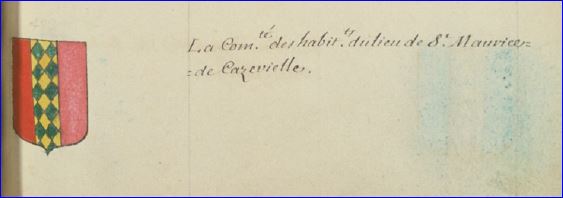 La Com.té des habit.ts du lieu de St. Maurice=
=de Cazevielles.